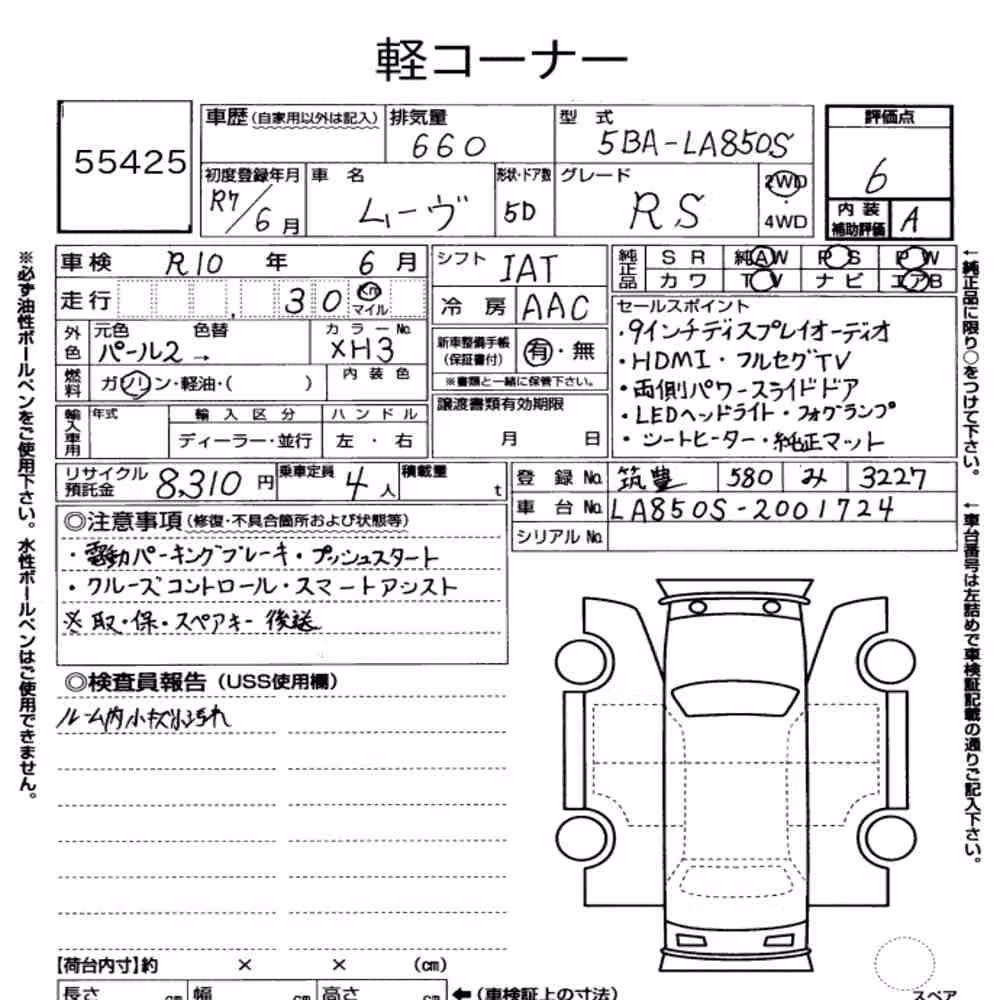 軽コーナー
55425
車歴 (自家用以外は記入)
排気量
660
型 式
5BA-LA850S
評価点
6
内装補助評価
A
初度登録年月
R7/6月
車 名
ムーヴ
形状・ドア数
5D
グレード
RS
2WD
4WD
車検 R10 年 6 月
走行 30 Km マイル
シフト IAT
冷 房 AAC
純正品
S R 純AW P S P W
カ ワ T V ナ ビ エアB
外色
元色 色替
パール2 →
カラーNo.
XH3
燃料
ガソリン・軽油・( )
内 装 色
新車整備手帳
(保証書付)
有・無
※書類と一緒に保管下さい。
輸入車用
年式
輸 入 区 分
ディーラー・並行
ハ ン ド ル
左 ・ 右
譲渡書類有効期限
月 日
セールスポイント
・9インチディスプレイオーディオ
・HDMI・フルセグTV
・両側パワースライドドア
・LEDヘッドライト・フォグランプ
・シートヒーター・純正マット
リサイクル預託金 8,310 円
乗車定員 4 人
積載量 t
登 録 No. 筑豊 580 み 3227
車 台 No. LA850S-2001724
シリアル No.
◎注意事項 (修復・不具合箇所および状態等)
・電動パーキングブレーキ・プッシュスタート
・クルーズコントロール・スマートアシスト
※取・保・スペアキー後送
◎検査員報告 (USS使用欄)
ルーム内小キズ小汚れ
【荷台内寸】約 × × (㎝)
長さ ㎝ 幅 ㎝ 高さ ㎝ ←(車検証上の寸法)
スペア
※必ず油性ボールペンをご使用下さい。水性ボールペンはご使用できません。
←純正品に限り○をつけて下さい。
←車台番号は左詰めで車検証記載の通りご記入下さい。